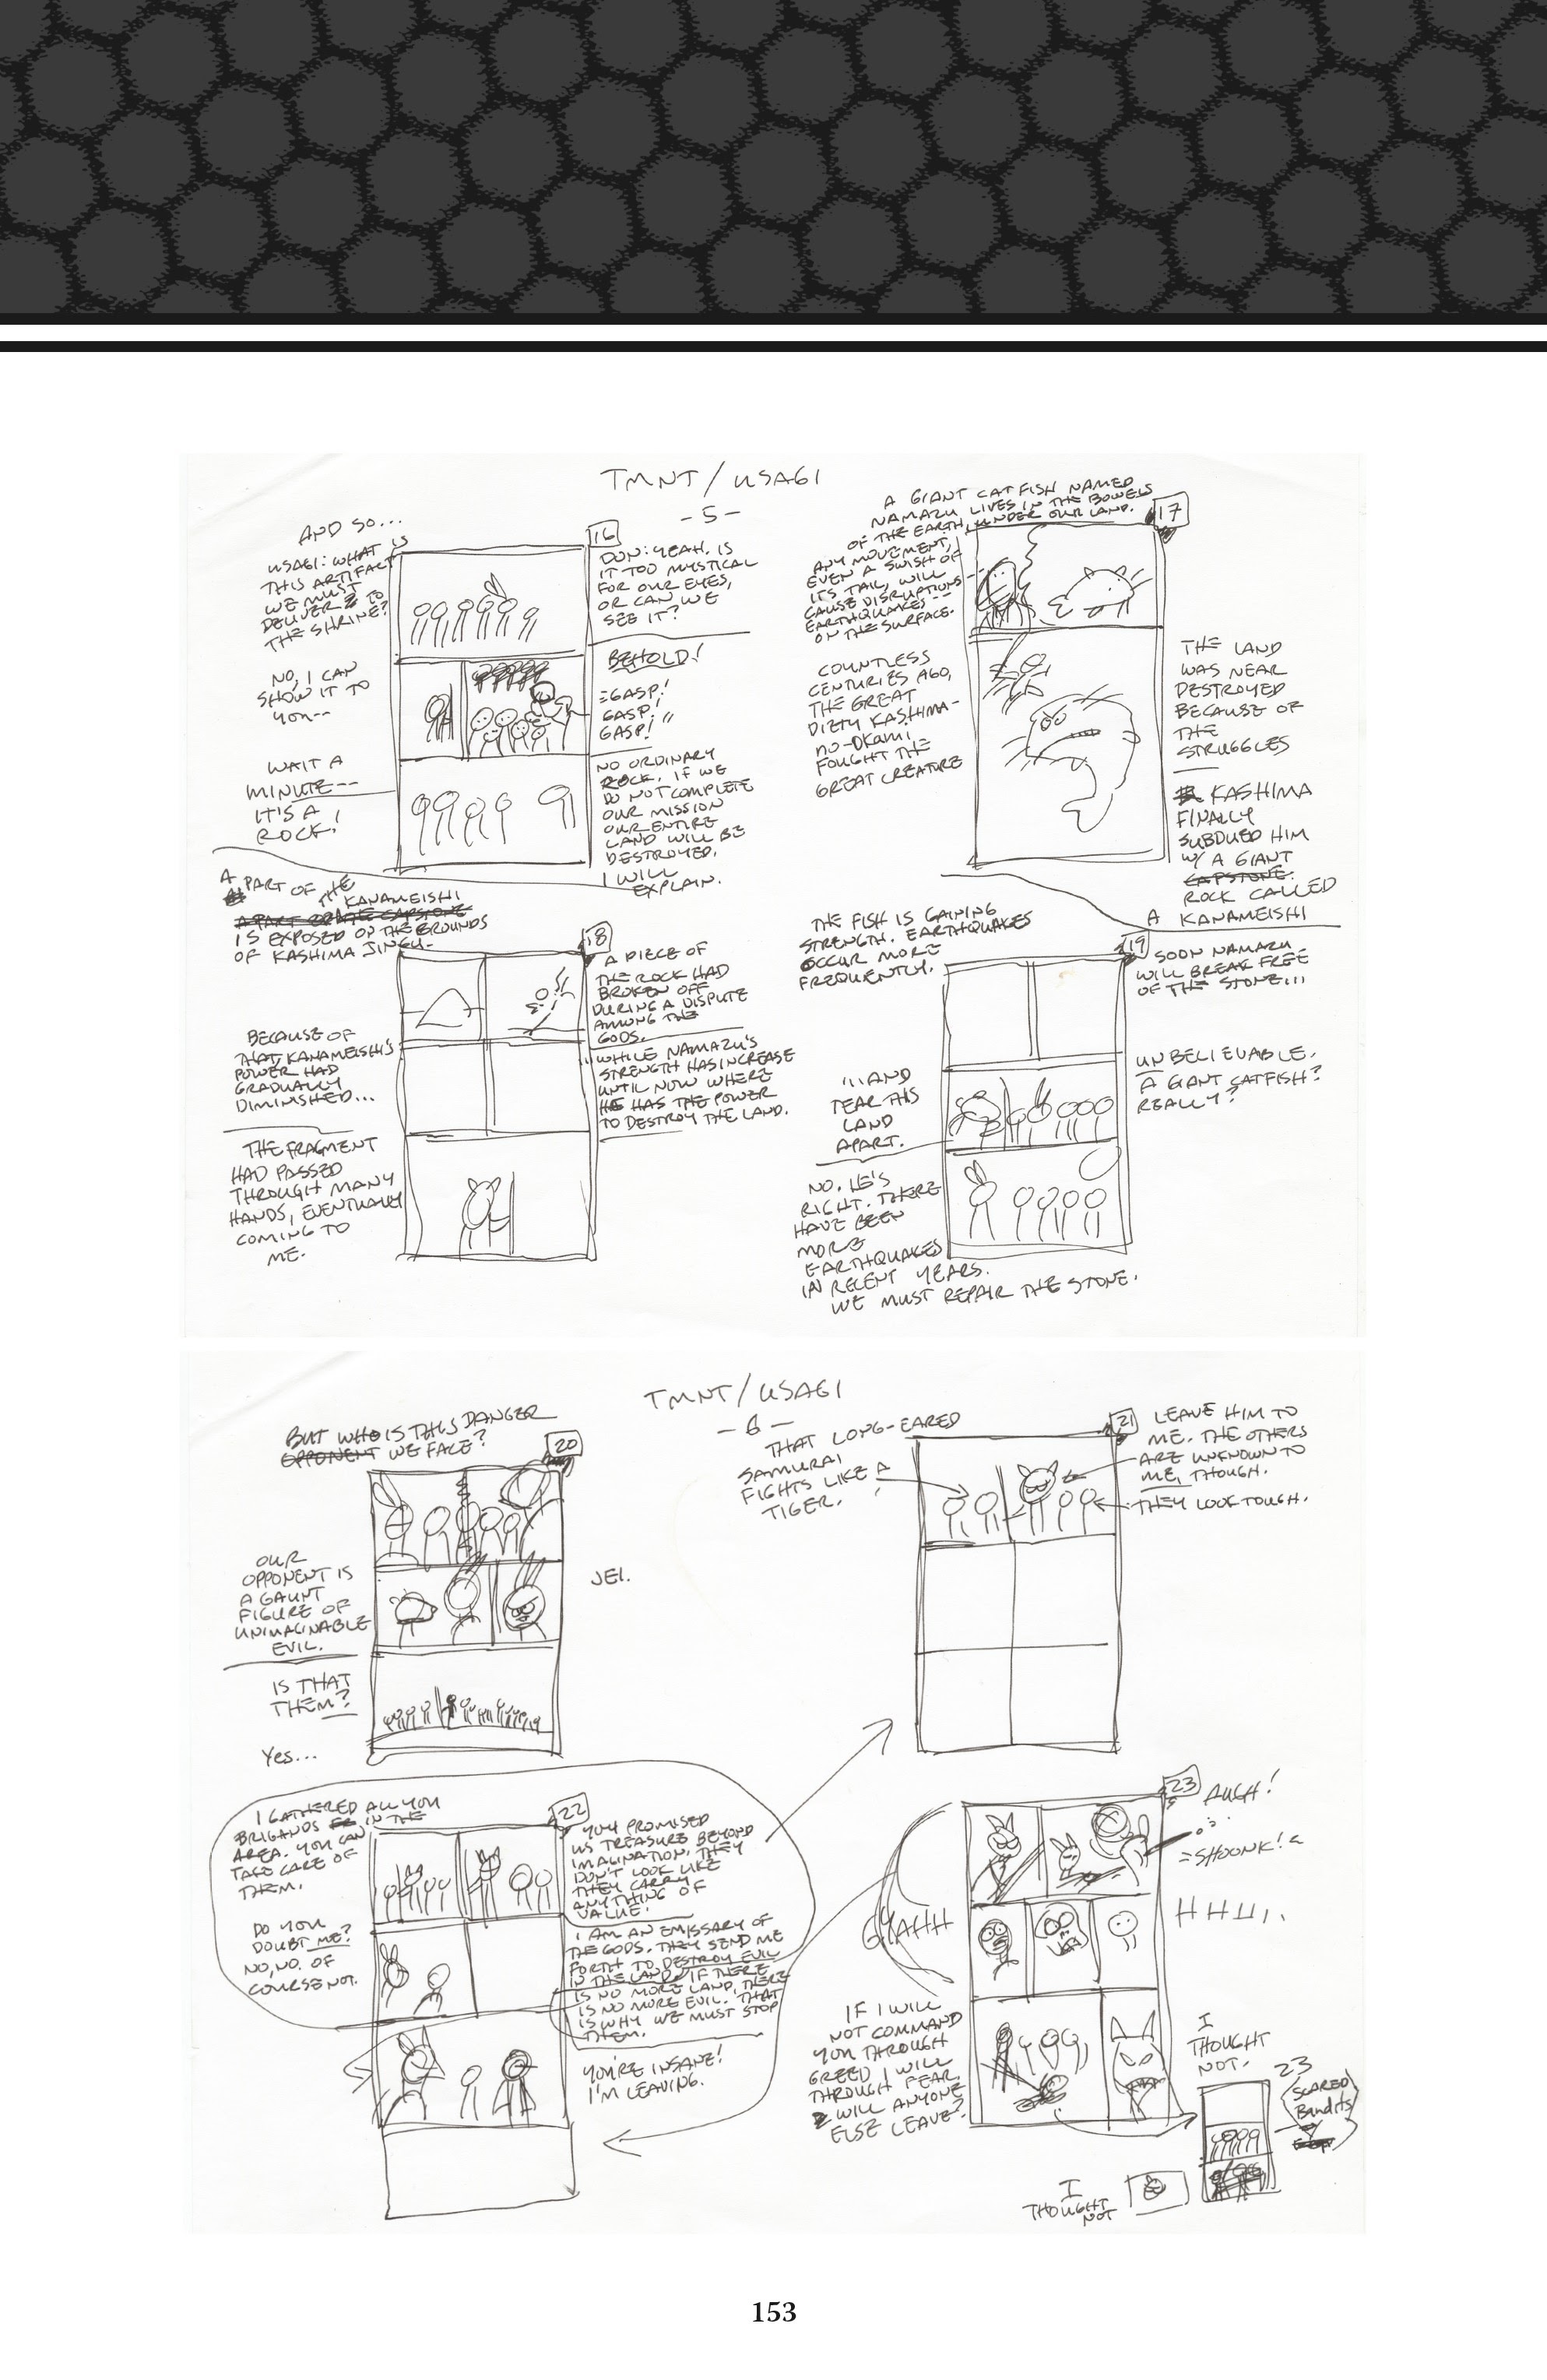 TMNT / USAGI
- 5 -
AND SO...
USAGI: WHAT IS
THIS ARTIFACT
WE MUST
DELIVER TO
THE SHRINE?
16
DON: YEAH. IS
IT TOO MYSTICAL
FOR OUR EYES,
OR CAN WE
SEE IT?
NO, I CAN
SHOW IT TO
YOU--
BEHOLD!
=GASP!
GASP!
GASP!
WAIT A
MINUTE--
IT'S A
ROCK!
NO ORDINARY
ROCK. IF WE
DO NOT COMPLETE
OUR MISSION
OUR ENTIRE
LAND WILL BE
DESTROYED.
I WILL
EXPLAIN.
17
A GIANT CATFISH NAMED
NAMAZU LIVES IN THE BOWELS
OF THE EARTH, UNDER OUR LAND.
ANY MOVEMENT,
EVEN A SWISH OF
ITS TAIL, WILL
CAUSE DISRUPTIONS--
EARTHQUAKES--
ON THE SURFACE.
COUNTLESS
CENTURIES AGO,
THE GREAT
DIETY KASHIMA-
NO-OKAMI
FOUGHT THE
GREAT CREATURE
THE LAND
WAS NEAR
DESTROYED
BECAUSE OF
THE
STRUGGLES
KASHIMA
FINALLY
SUBDUED HIM
W/ A GIANT
CAPSTONE.
ROCK CALLED
A KANAMEISHI
A PART OF THE
KANAMEISHI
A PART OF THE CAPSTONE
IS EXPOSED ON THE GROUNDS
OF KASHIMA JINGU.
18
A PIECE OF
THE ROCK HAD
BROKEN OFF
DURING A DISPUTE
AMONG THE
GODS.
BECAUSE OF
THAT, KANAMEISHI'S
POWER HAD
GRADUALLY
DIMINISHED...
...WHILE NAMAZU'S
STRENGTH HAS INCREASE
UNTIL NOW WHERE
HE HAS THE POWER
TO DESTROY THE LAND.
THE FRAGMENT
HAD PASSED
THROUGH MANY
HANDS, EVENTUALLY
COMING TO
ME.
19
THE FISH IS GAINING
STRENGTH. EARTHQUAKES
OCCUR MORE
FREQUENTLY.
SOON NAMAZU
WILL BREAK FREE
OF THE STONE...
...AND
TEAR THIS
LAND
APART.
UNBELIEVABLE.
A GIANT CATFISH?
REALLY?
NO. HE'S
RIGHT. THERE
HAVE BEEN
MORE
EARTHQUAKES
IN RECENT YEARS.
WE MUST REPAIR THE STONE.
TMNT / USAGI
- 6 -
BUT WHO IS THIS DANGER
OPPONENT WE FACE?
20
OUR
OPPONENT IS
A GAUNT
FIGURE OF
UNIMAGINABLE
EVIL.
JEI.
IS THAT
THEM?
YES...
21
THAT LONG-EARED
SAMURAI
FIGHTS LIKE A
TIGER.
LEAVE HIM TO
ME. THE OTHERS
ARE UNKNOWN TO
ME, THOUGH.
THEY LOOK TOUGH.
22
I GATHERED ALL YOU
BRIGANDS IN THE
AREA. YOU CAN
TAKE CARE OF
THEM.
YOU PROMISED
US TREASURE BEYOND
IMAGINATION. THEY
DON'T LOOK LIKE
THEY CARRY
ANYTHING OF
VALUE.
DO YOU
DOUBT ME?
NO, NO. OF
COURSE NOT.
I AM AN EMISSARY OF
THE GODS. THEY SEND ME
FORTH TO DESTROY EVIL
IN THE LAND. IF THERE
IS NO MORE LAND, THERE
IS NO MORE EVIL. THAT
IS WHY WE MUST STOP
THEM.
YOU'RE INSANE!
I'M LEAVING.
23
AUGH!
=SHOONK!
GYAHH
HHH...
IF I WILL
NOT COMMAND
YOU THROUGH
GREED I WILL
THROUGH FEAR.
WILL ANYONE
ELSE LEAVE?
I
THOUGHT
NOT.
23
SCARED
Bandits
I
THOUGHT
NOT
153